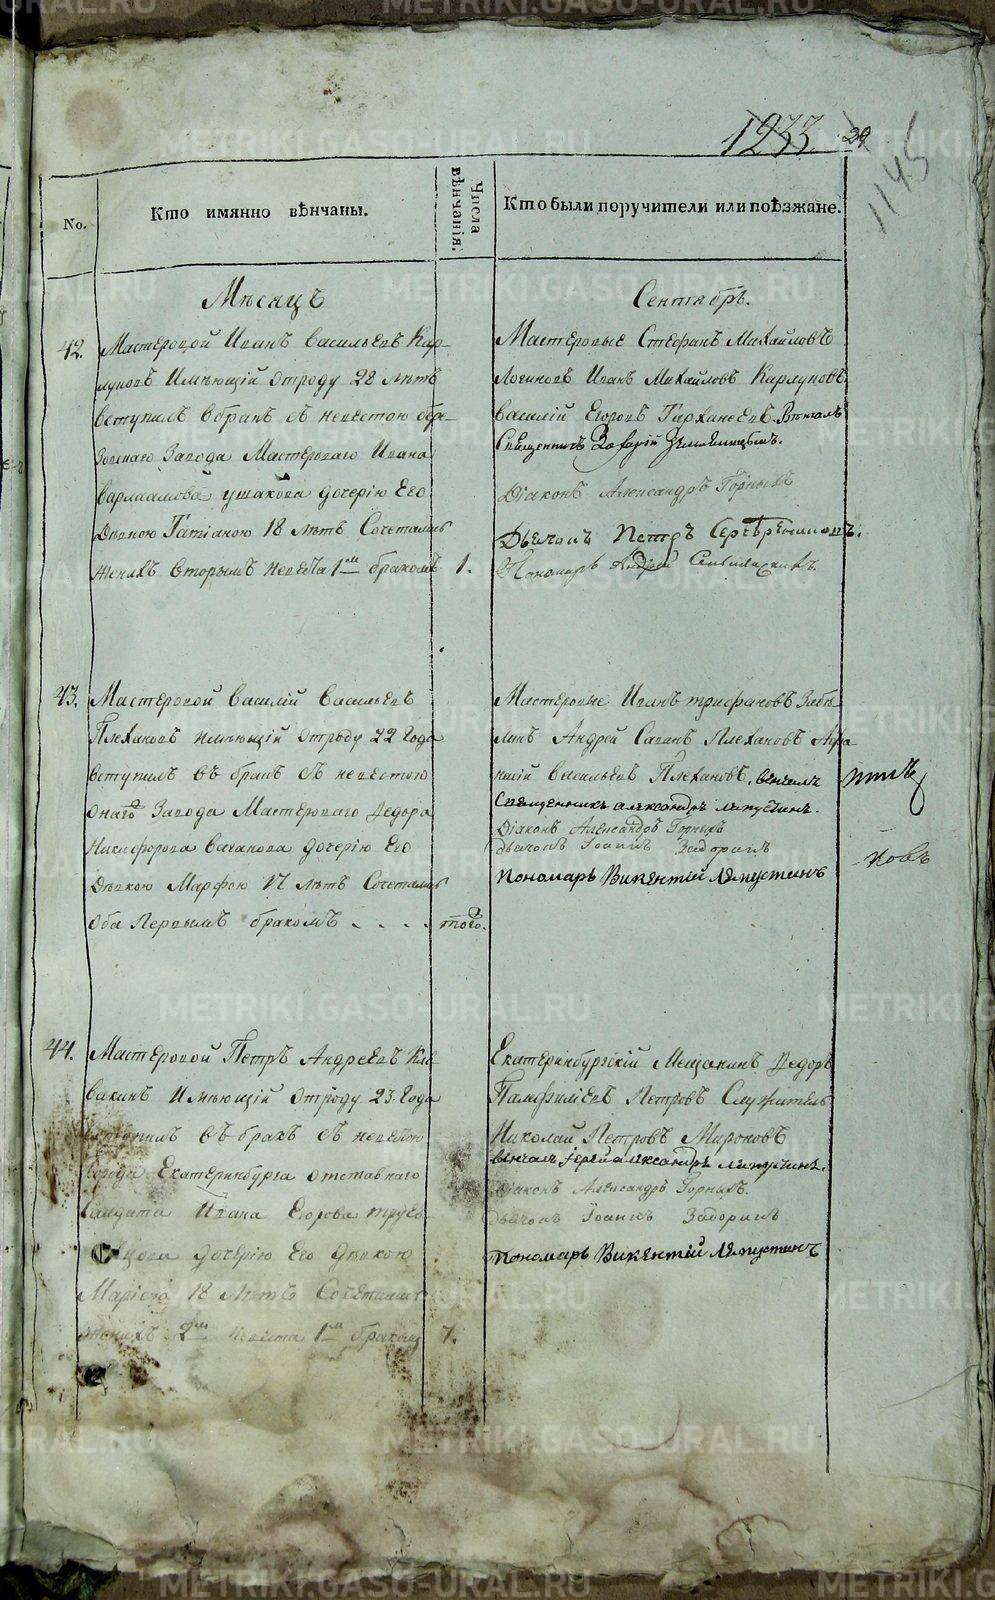 1233 29
1145
No.
Кто имянно вѣнчаны.
Числа вѣнчанія.
Кто были поручители или поѣзжане.
Мѣсяцъ
Сентябрь.
42.
Мастеровой Иванъ Васильевъ Кар-
луковъ Имѣющій отроду 28 лѣтъ
вступилъ вбракъ съ невѣстою бере-
зовскаго Завода Мастероваго Ивана
Варлаамова ушакова дочерію Его
Дѣвкою Татіаною 18 лѣтъ Сочетались
Женихъ вторымъ невѣста 1мъ бракомъ
1.
Мастеровые Стефанъ Михайловъ
Логиновъ Иванъ Михайловъ Карлуковъ
Василій Егоровъ Тарханеевъ. Вѣнчалъ
Священникъ Захарій
Діаконъ Александръ Горныхъ
Дьячокъ Петръ
Пономарь Андрей
43.
Мастеровой Василій Васильевъ
Плехановъ имѣющій отроду 22 Года
вступилъ въ бракъ съ невѣстою
онаго Завода Мастероваго Ѳедора
Никифорова Ваганова дочерію Его
Дѣвкою Марфою 17 лѣтъ Сочетались
Оба Первымъ бракомъ . . . .
того.
Мастеровые Иванъ трифановъ Забѣ
линъ Андрей Савинъ Плехановъ
Васильевъ Плехановъ. вѣнчалъ
Священникъ александръ ляпустинъ.
Діаконъ Александръ Горныхъ
дьячокъ Іоаннъ Задоринъ
Пономарь Викентій Ляпустинъ
новъ
44.
Мастеровой Петръ Андреевъ Кле
вакинъ Имѣющій отроду 23. Года
вступилъ въ бракъ съ невѣстою
Города Екатеринбурга отставнаго
Салдата Ивана Егорова
дочерію Его дѣвкою
Маріею 18 лѣтъ Сочетались
Женихъ 2мъ невѣста 1мъ бракомъ
7.
Екатеринбургскій Мещанинъ Ѳедоръ
Памфиловъ Петровъ Служитель
Николай Петровъ Мироновъ
вѣнчалъ іерей александръ ляпустинъ.
Діаконъ Александръ Горныхъ.
дьячокъ Іоаннъ Задоринъ
Пономарь Викентій Ляпустинъ
METRIKI.GASO-URAL.RU